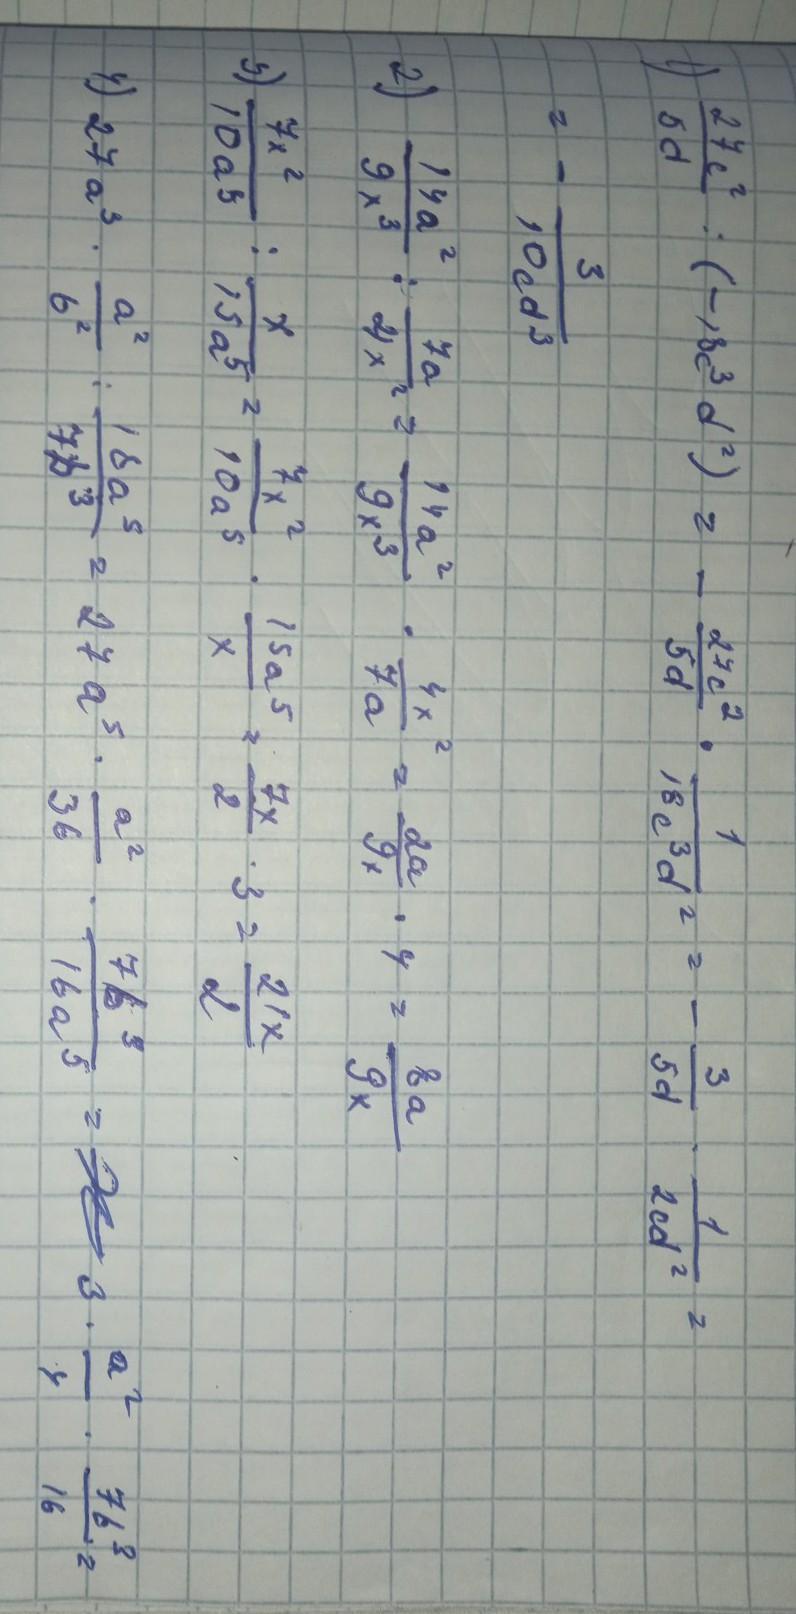 1) 27c²/5d : (-18c³d²) = - 27c²/5d · 1/18c³d² = - 3/5d · 1/2cd² =
= - 3/10cd³
2) 14a²/9x³ : 7a/4x² = 14a²/9x³ · 4x²/7a = 2a/9x · 4 = 8a/9x
3) 7x²/10a⁵ : x/15a⁵ = 7x²/10a⁵ · 15a⁵/x = 7x/2 · 3 = 21x/2
4) 27a³ · a²/b² : 16a⁵/7b³ = 27a⁵ · a²/36 · 7b³/16a⁵ = 3 · a²/4 · 7b³/16 =